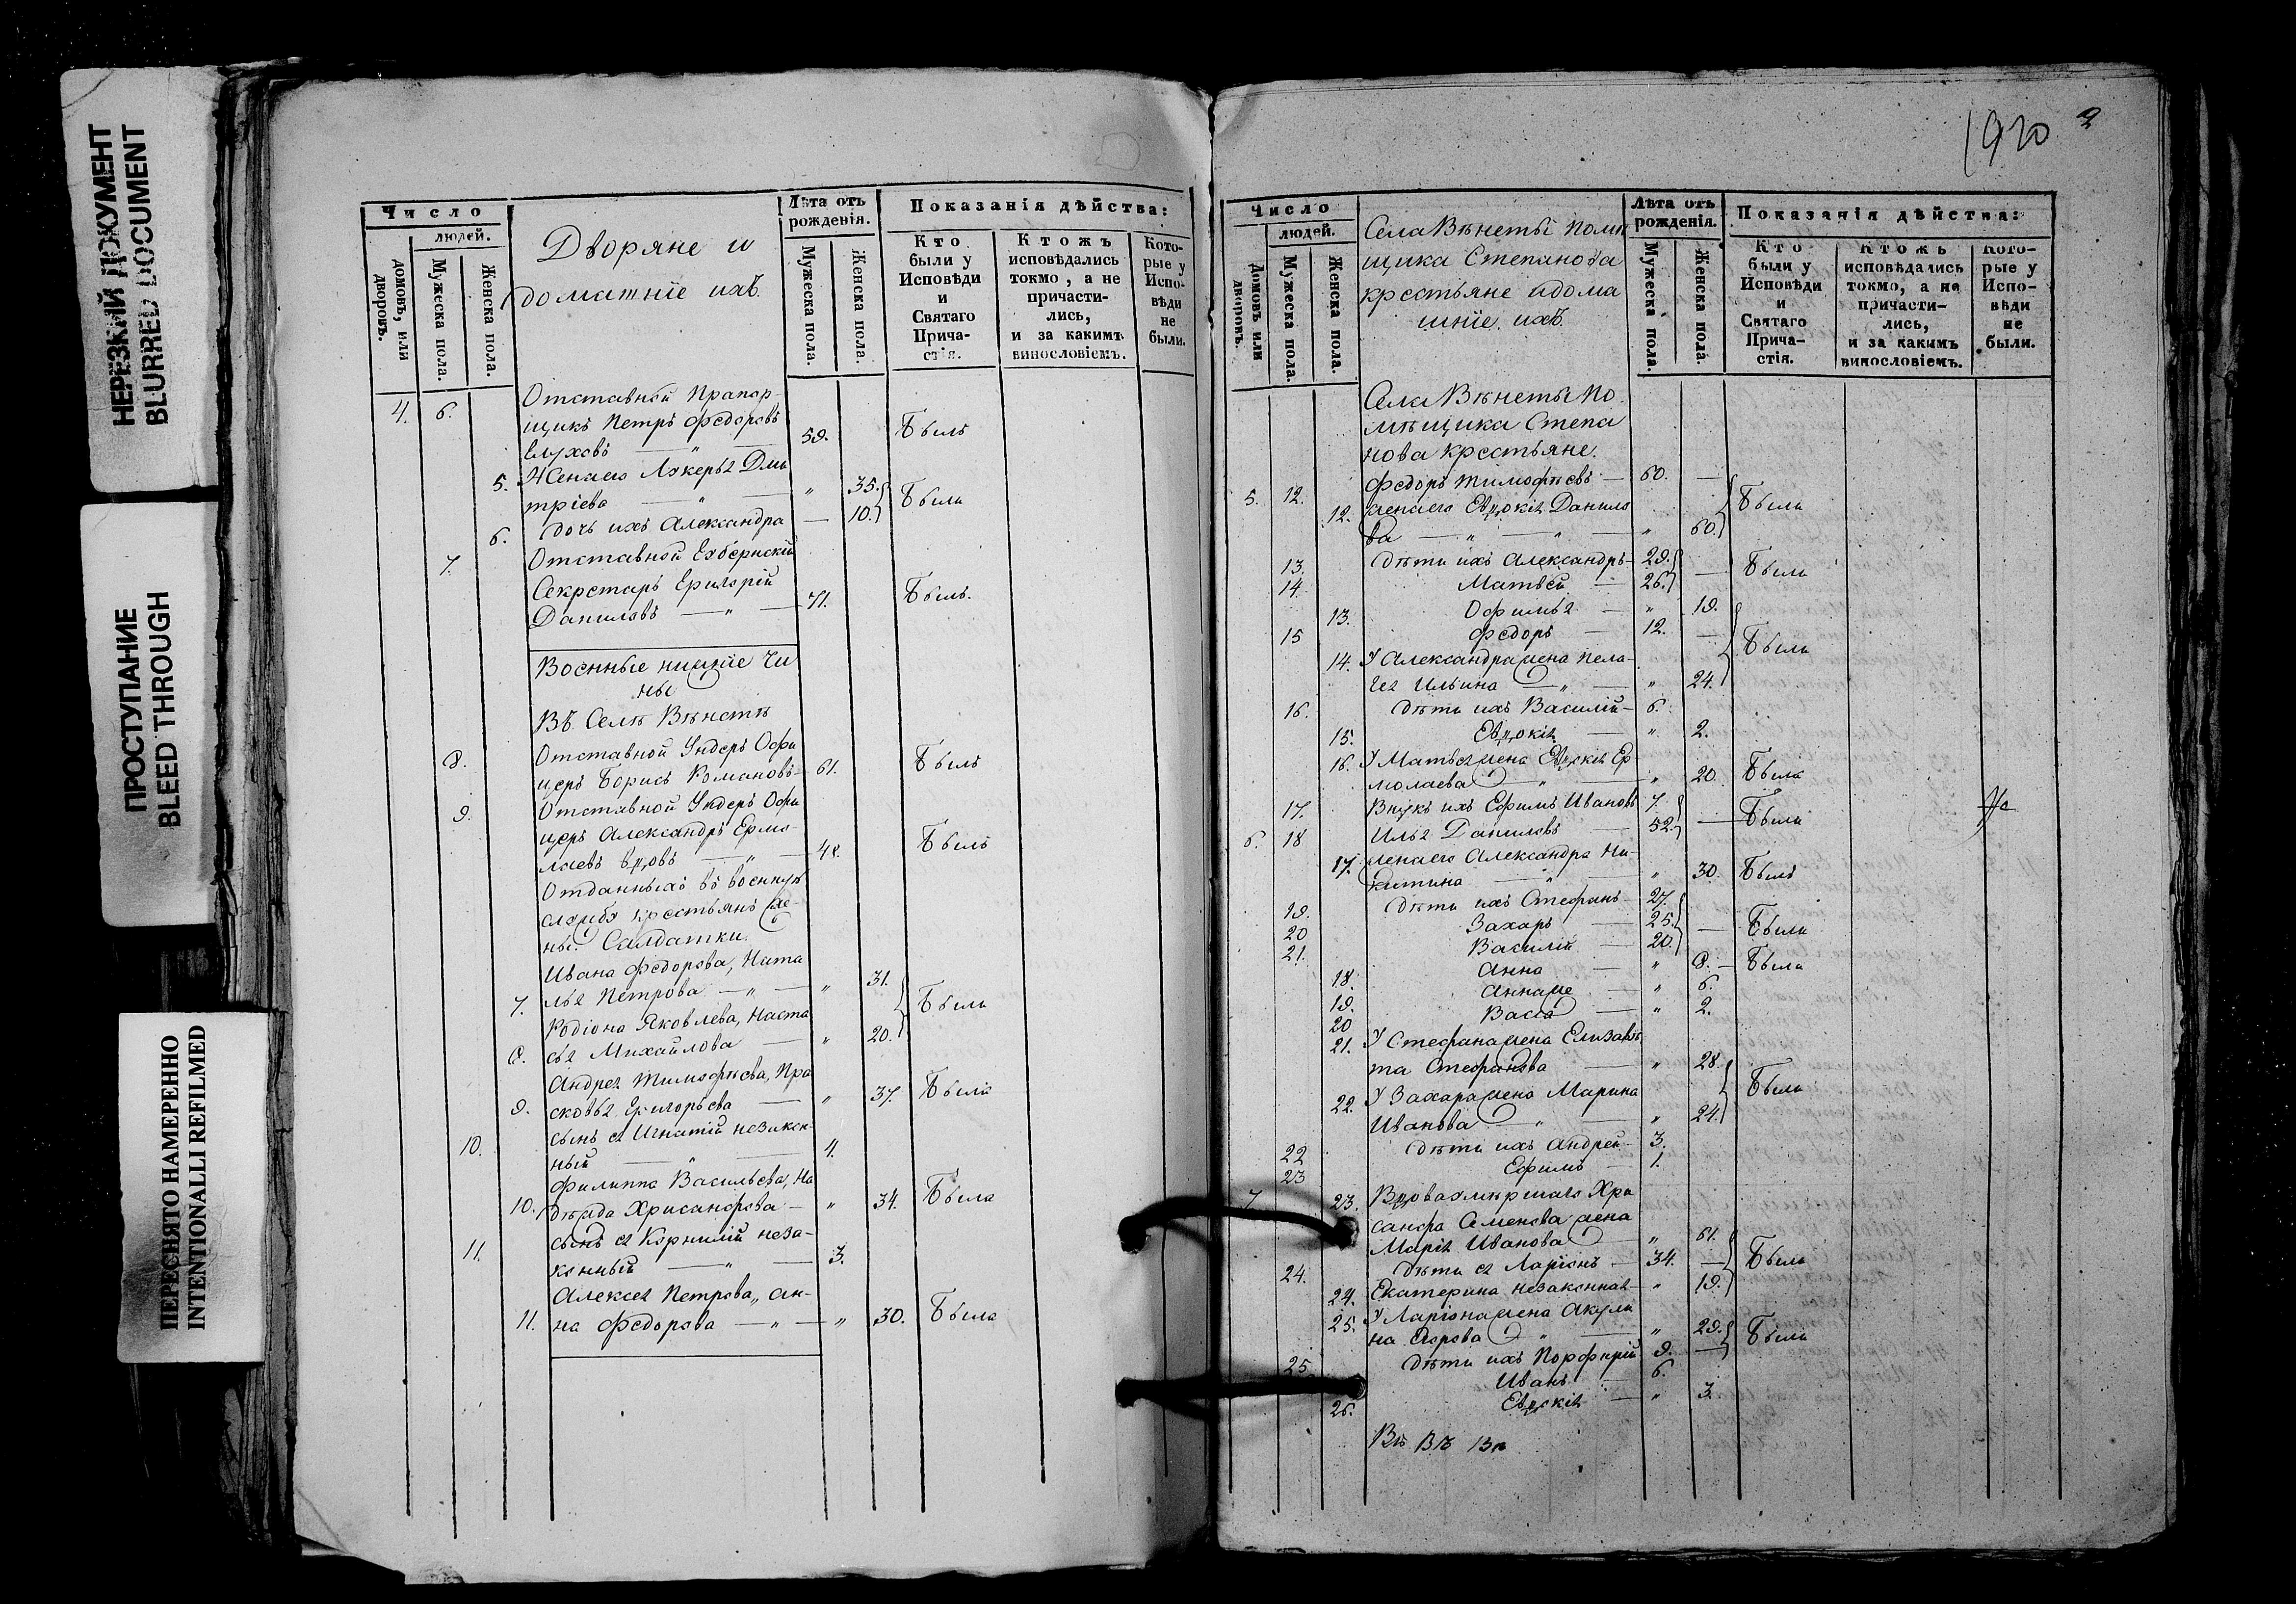 НЕРЕЗКИЙ ДОКУМЕНТ
BLURRED DOCUMENT
ПРОСТУПАНИЕ
BLEED THROUGH
ПЕРЕСНЯТО НАМЕРЕННО
INTENTIONALLI REFILMED
Число
людей.
домовъ, или дворовъ.
Мужеска пола.
Женска пола.
Дворяне и
домашнїе ихъ.
Лѣта отъ рожденія.
Мужеска пола.
Женска пола.
Показанія дѣйства:
Кто были у Исповѣди и Святаго Прича-стія.
Ктожъ исповѣдались токмо, а не причасти-лись, и за какимъ винословіемъ.
Кото-рые у Испо-вѣди не были.
4. 6. Отставной Прапор-
щикъ Петръ Федоровъ
Глуховъ — " — 59. Былъ
5. Жена его Лукерья Дми
трїева — " — " 35.
6. дочь ихъ Александра — 10. Были
7. Отставной Губернскїй
Секретарь Григорїй
Даниловъ — " — 71. Былъ.
Военные нижнїе Чи
ны
Въ Селѣ Вѣнетѣ
8. Отставной Ундеръ Офи
церъ Борисъ Романовъ — 61. Былъ
9. Отставной Ундеръ Офи
церъ Александръ Ермо-
лаевъ вдовъ — " — 48. Былъ
Отданныхъ въ военную
службу крестьянъ же-
ны. Салдатки.
Ивана Федорова, Ната
7. лья Петрова — " — " 31.
Родїона Яковлева, Наста
8. сья Михайлова — " 20. Были
Андрея Тимофѣева, Пра
9. сковья Григорьева — " 37. Была
10. сынъ ея Игнатїй незакон-
ный — " — 4.
Филиппа Васильева, На
10. дѣжда Хрисанфова — " 34. Была
11. сынъ ея Корнилїй неза-
конный — " — 3.
Алексея Петрова, Ан-
11. на Федорова — " — " 30. Была
1920
2
Число
людей.
Домовъ или дворовъ.
Мужеска пола.
Женска пола.
Села Вѣнеты помѣ
щика Степанова
крестьяне и дома
шнїе ихъ.
Лѣта отъ рожденія.
Мужеска пола.
Женска пола.
Показанія дѣйства:
Кто были у Исповѣди и Святаго Прича-стія.
Ктожъ исповѣдались токмо, а не причасти-лись, и за какимъ винословіемъ.
Кото-рые у Испо-вѣди не были.
Села Вѣнеты По
мѣщика Степа
нова крестьяне.
5. 12. Федоръ Тимофѣевъ — 60. —
12. жена его Евдокїя Данило
ва — " — " — " 60. Были
13. дѣти ихъ Александръ — 29.
14. Матвей — 26. — Были
13. Офимья — " 19.
15 Федоръ — 12. — Были
14. У Александра жена Пела-
гея Ильина — " — " 24.
16. дѣти ихъ Василїй — 6.
15. Евдокїя — " 2.
16. У Матвея жена Евдокїя Ер
молаева — " — " 20. Была
17. Внукъ ихъ Ефимъ Ивановъ 7.
6. 18 Илья Даниловъ — 52. — Были
17. жена его Александра Ни-
китина — " — " 30. Былъ
19. дѣти ихъ Стефанъ — 27.
20 Захаръ — 25. — Были
21. Василїй — 20.
18. Анна — " 8. — Была
19. Анна же — " 6.
20 Васса — " 2.
21. У Стефана жена Елизаве
та Стефанова — " 28.
22. У Захара жена Марина
Иванова — " — " 24. Были
22 дѣти ихъ Андрей — 3.
23 Ефимъ — 1.
7. 23. Вдова умершаго Хри
санфа Семенова жена
Марїя Иванова — " 61.
24. дѣти ея Ларїонъ — 34. — Были
24. Екатерина незаконная — " 19.
25. У Ларїона жена Акули
на Егорова — " — " 29. Были
25 дѣти ихъ Порфирїй 9. —
Иванъ — 6.
26. Евдокїя — " 3.